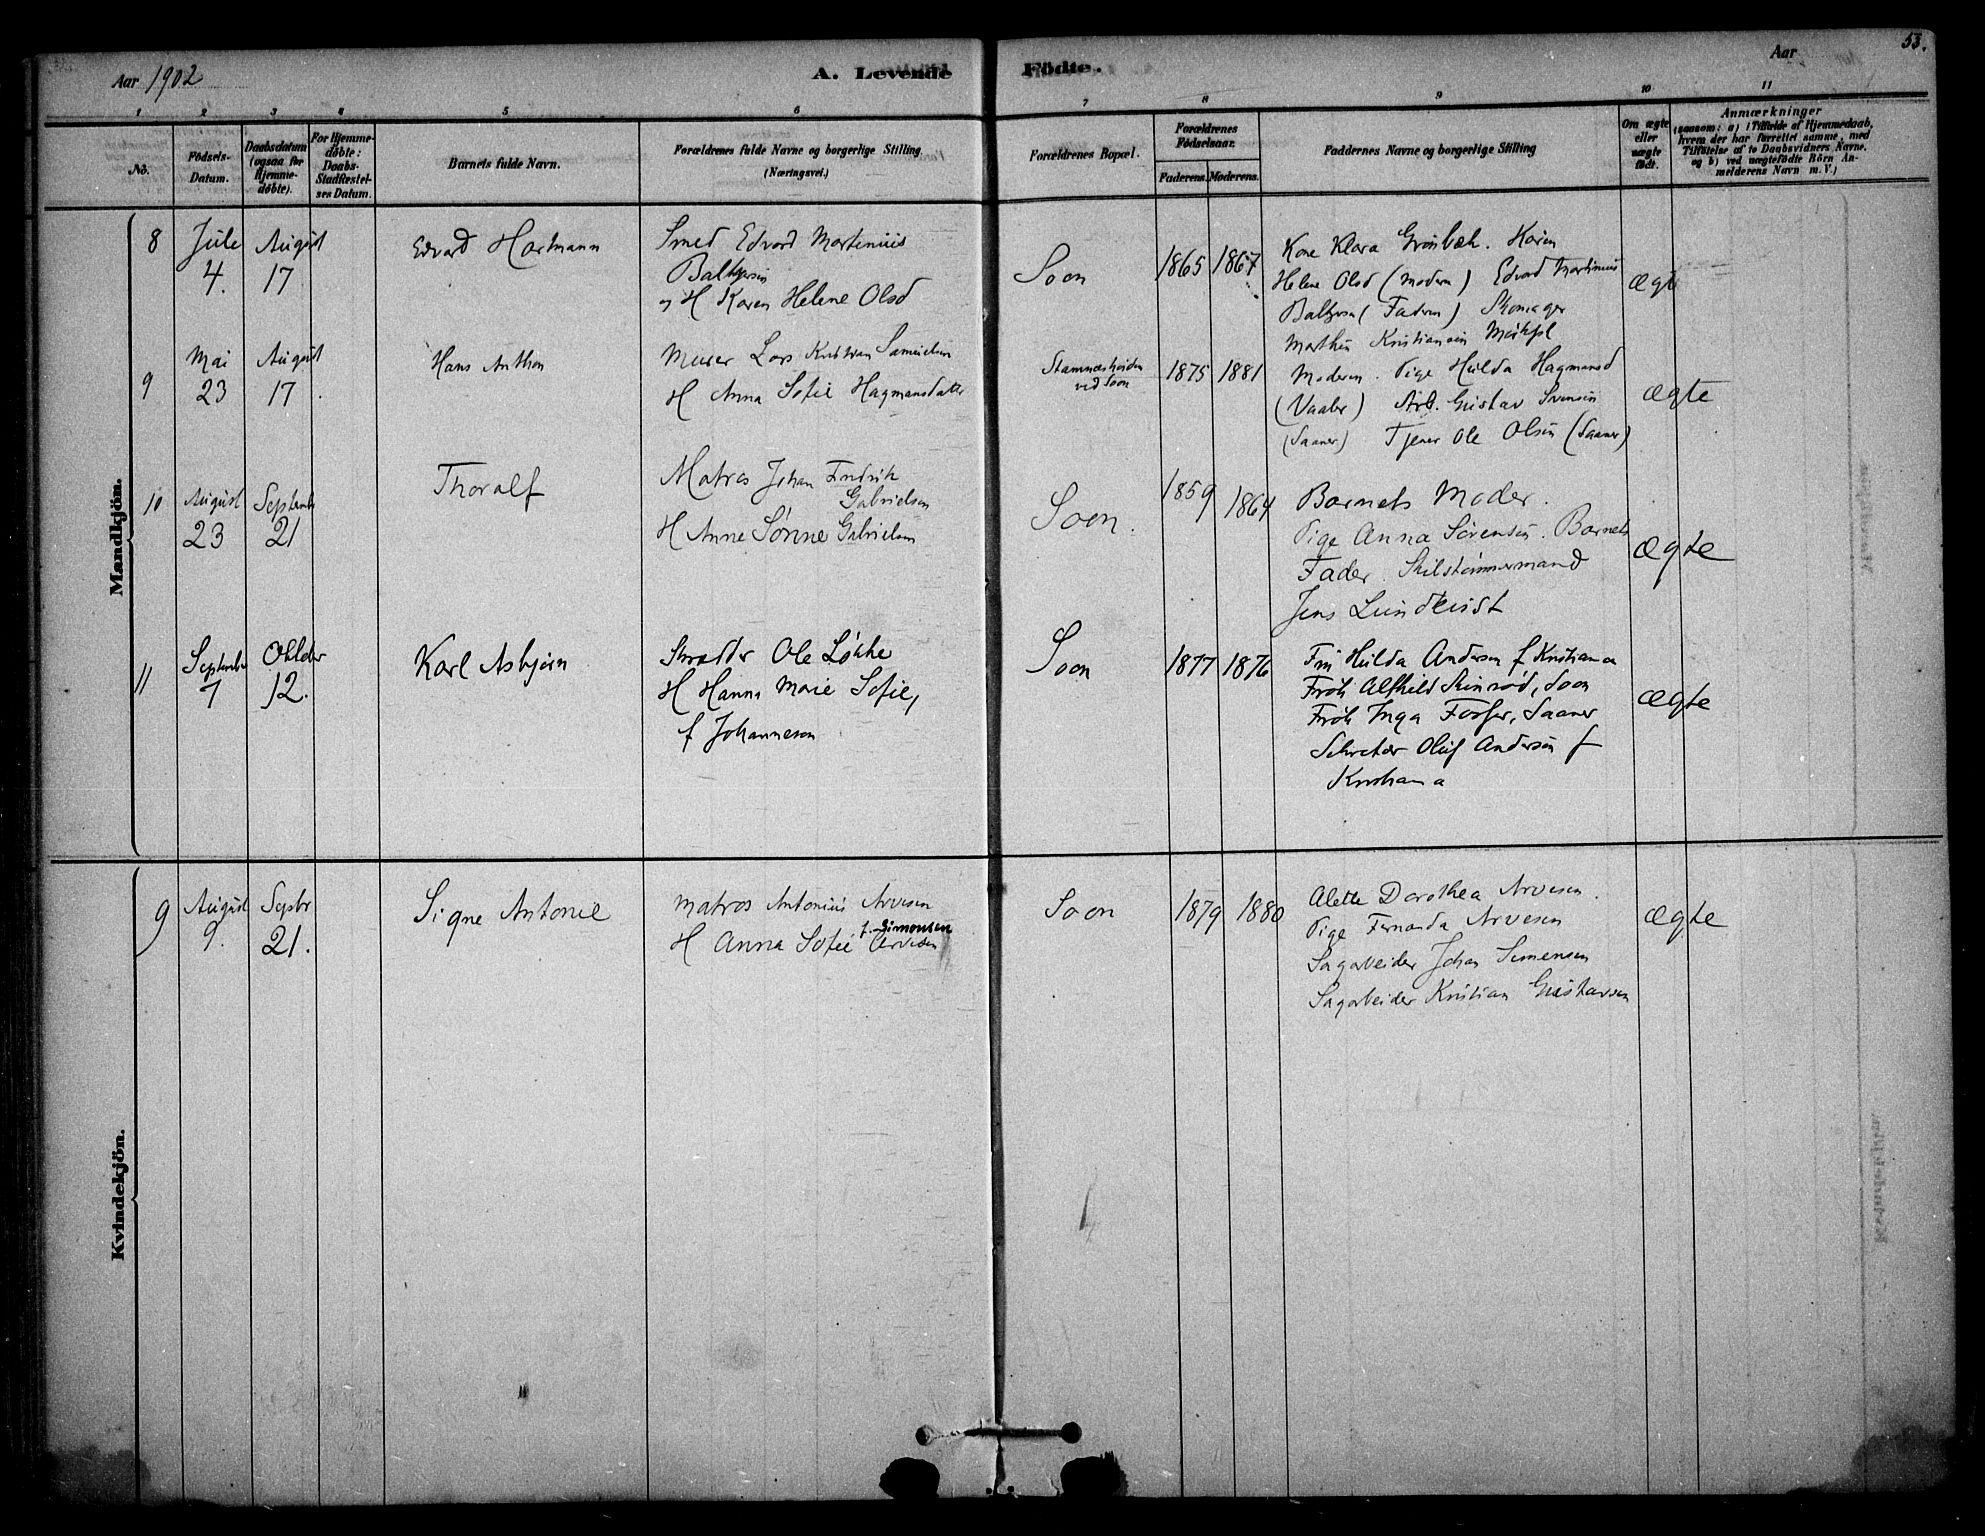 Aar 1902
A. Levende Födte.
Aar
53.
1 2 3 4 5 6 7 8 9 10 11
No.
Födsels-
Datum.
Daabsdatum
(ogsaa for
Hjemme-
döbte).
For Hjemme-
döbte:
Daabs-
Stadfæstel-
ses Datum.
Barnets fulde Navn.
Forældrenes fulde Navne og borgerlige Stilling
(Næringsvei.)
Forældrenes Bopæl.
Forældrenes
Födselsaar.
Faderens. Moderens.
Faddernes Navne og borgerlige Stilling
Om ægte
eller
uægte
födt.
Anmærkninger
(saasom: a) i Tilfælde af Hjemmedaab,
hvem der har forrettet samme, med
Tilföielse af to Daabsvidners Navne,
og b) ved uægtefödte Börn An-
melderens Navn m. V.)
Mandkjön.
8 Juli 4. August 17
Edvard Hartmann
Smed Edvard Martinius
Baltzersen
og H Karen Helene Olsd
Soon
1865 1867
Kone Klara Grönbæk. Karen
Helene Olsd (Modern) Edvard Martinius
Baltzersen (Fadern) Skomager
Marthin Kristiansen
ægte
9 Mai 23 August 17
Hans Anthon
Murer Lars Kristian Samuelsen
H Anna Sofie Hagmansdatter
Stamnæsheiden
ved Soon
1875 1881
Moderen. Pige Hulda Hagmansd
(Vaaler) Arb. Gustav Svensen
(Saaner) Tjener Ole Olsen (Saaner)
ægte
10 August 23 September 21
Thoralf
Matros Johan Fredrik
Gabrielsen
H Anne Sørine Gabrielsen
Soon.
1859 1864
Barnets Moder.
Pige Anna Sörensen. Barnets
Fader. Skibstømmermand
Jens Lundkvist
ægte
11 September 7 Oktober 12.
Karl Asbjørn
Skrædder Ole Løkke
H Hanna Marie Sofie,
f Johannesen
Soon
1877 1876
Fru Hulda Andersen f Kristiania
Frøk Alfhild Skinrød, Soon
Frøk Inga Fosser, Saaner
Sekretær Oluf Andersen f
Kristiania
ægte
Kvindekjön.
9 August 9. Septbr 21.
Signe Antonie
Matros Antonius Arvesen
f. Simonsen
H Anna Sofie Arvesen
Soon
1879 1880
Alette Dorothea Arvesen.
Pige Fernanda Arvesen
Sagarbeider Johan Simensen
Sagarbeider Kristian Gustavsen
ægte